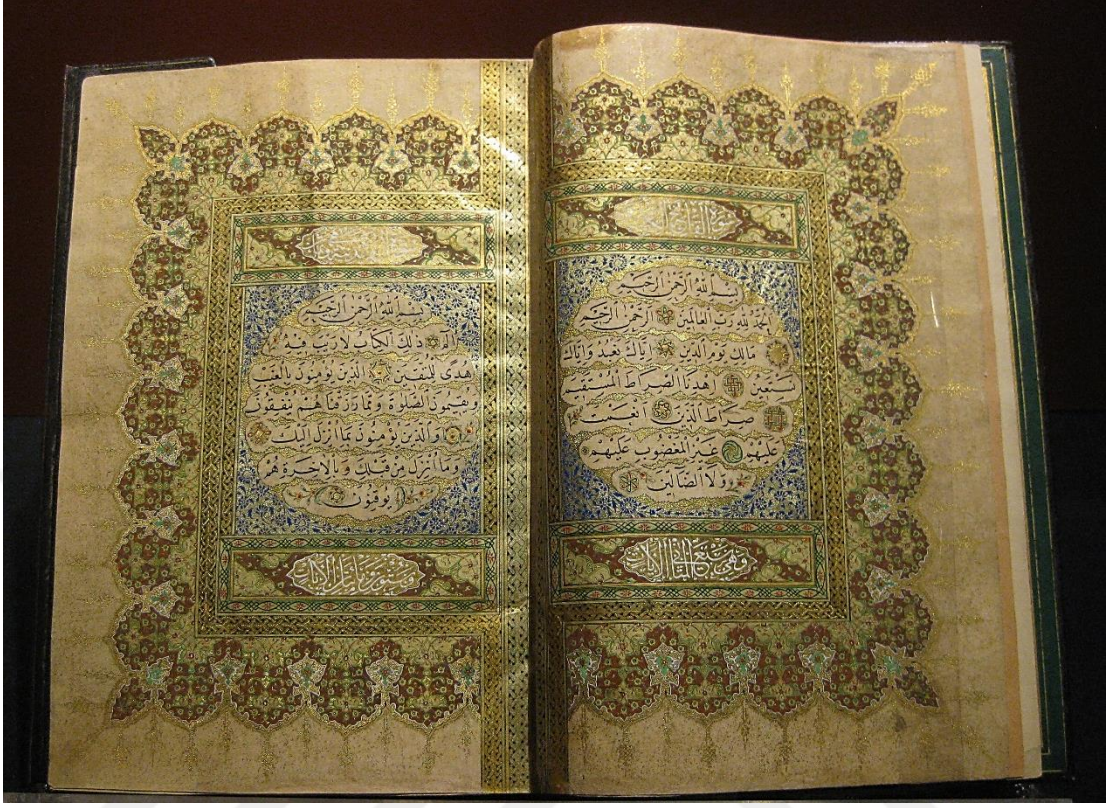 سورة الفاتحة
بِسْمِ اللّٰهِ الرَّحْمٰنِ الرَّحِيمِ
اَلْحَمْدُ لِلّٰهِ رَبِّ الْعَالَمِينَ الرَّحْمٰنِ الرَّحِيمِ
مَالِكِ يَوْمِ الدِّينِ اِيَّاكَ نَعْبُدُ وَاِيَّاكَ
نَسْتَعِينُ اِهْدِنَا الصِّرَاطَ الْمُسْتَقِيمَ
صِرَاطَ الَّذِينَ اَنْعَمْتَ
عَلَيْهِمْ غَيْرِ الْمَغْضُوبِ عَلَيْهِمْ
وَلَا الضَّالِّينَ
وهي سبع الآيات
بِسْمِ اللّٰهِ الرَّحْمٰنِ الرَّحِيمِ
الٓمٓ ذٰلِكَ الْكِتَابُ لَا رَيْبَ فِيهِ
هُدًى لِلْمُتَّقِينَ اَلَّذِينَ يُؤْمِنُونَ بِالْغَيْبِ
وَيُقِيمُونَ الصَّلٰوةَ وَمِمَّا رَزَقْنَاهُمْ يُنْفِقُونَ
وَالَّذِينَ يُؤْمِنُونَ بِمَا اُنْزِلَ اِلَيْكَ
وَمَا اُنْزِلَ مِنْ قَبْلِكَ وَبِالْاٰخِرَةِ هُمْ
يُوقِنُونَ